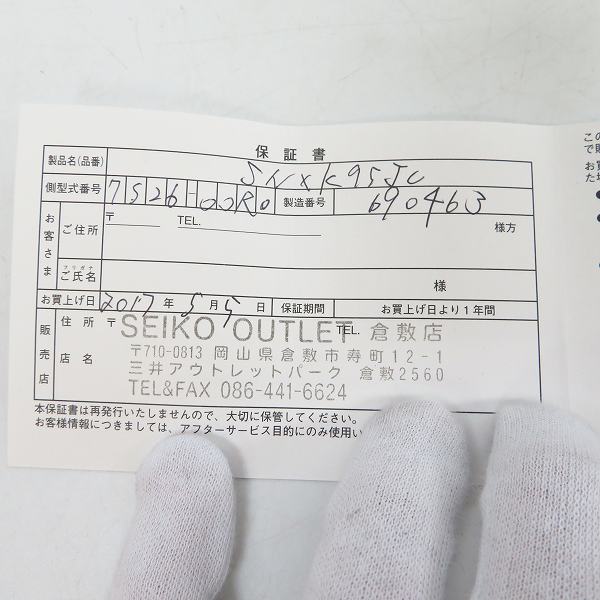 保証書
製品名(品番) SNXK95JC
側型式番号 7S26-00R0 製造番号 690463
お客さま
ご住所 〒 TEL. 様方
フリガナ
ご氏名 様
お買上げ日 2017年 5月 5日 保証期間 お買上げ日より1年間
販売店
住所 〒 TEL.
店名
SEIKO OUTLET 倉敷店
〒710-0813 岡山県倉敷市寿町12-1
三井アウトレットパーク 倉敷2560
TEL&FAX 086-441-6624
本保証書は再発行いたしませんので、大切に保管してください。
お客様情報につきましては、アフターサービス目的にのみ使用い
この
で販
お買
た場